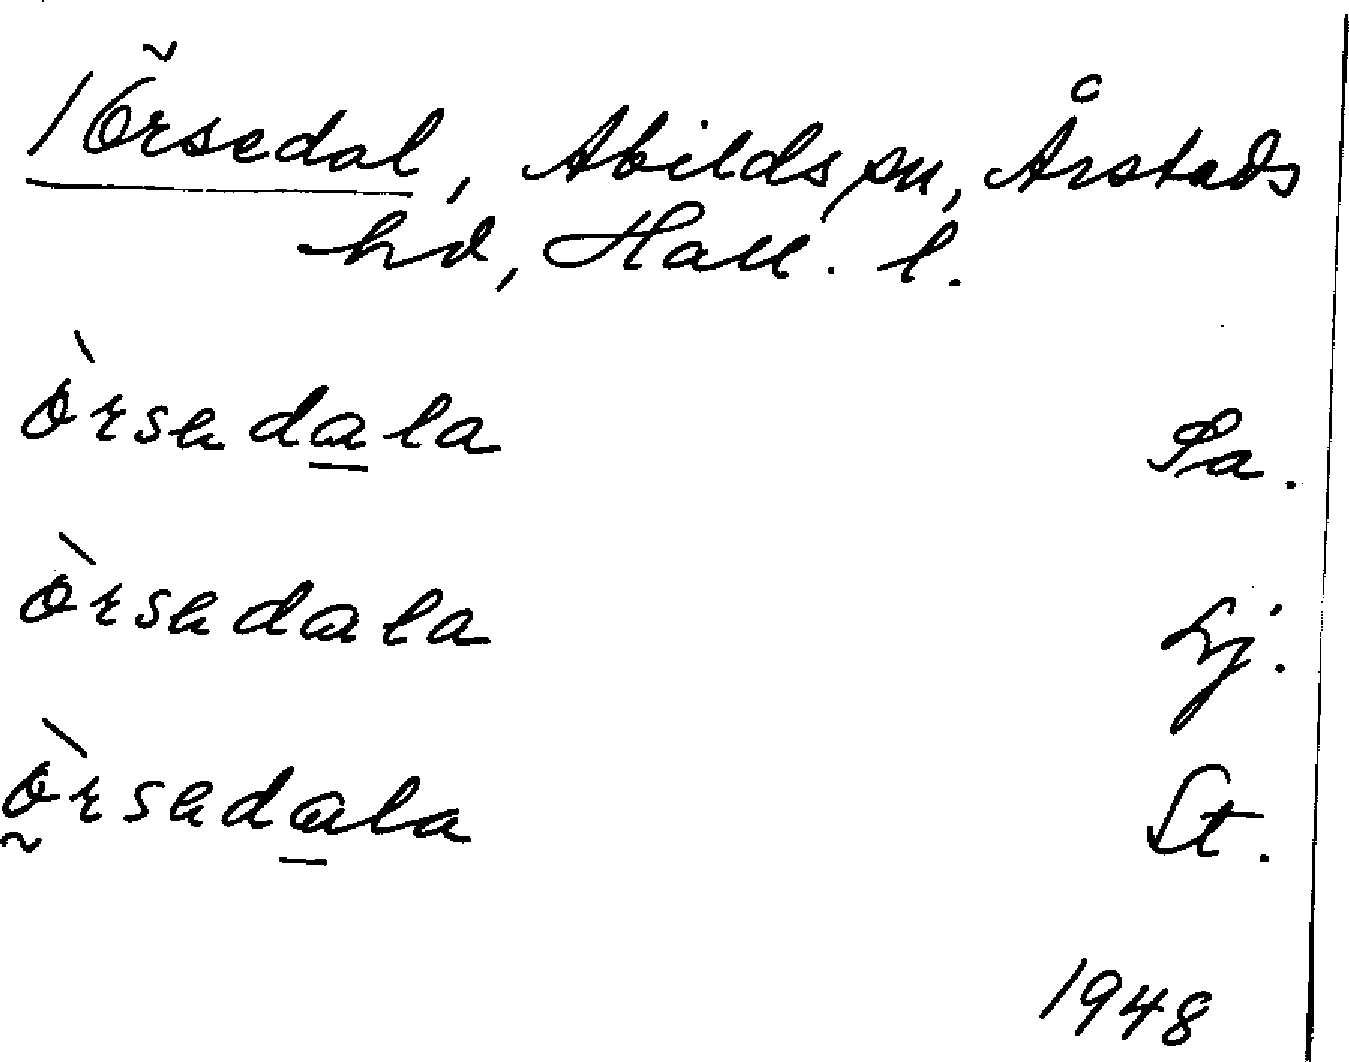 1 Örsedal, Abilds sn, Årstads
hd, Hall. l.
ɵ̀rsadala Sa.
ɵ̀rsadala Lj.
ɵ̀rsadala St.
1948